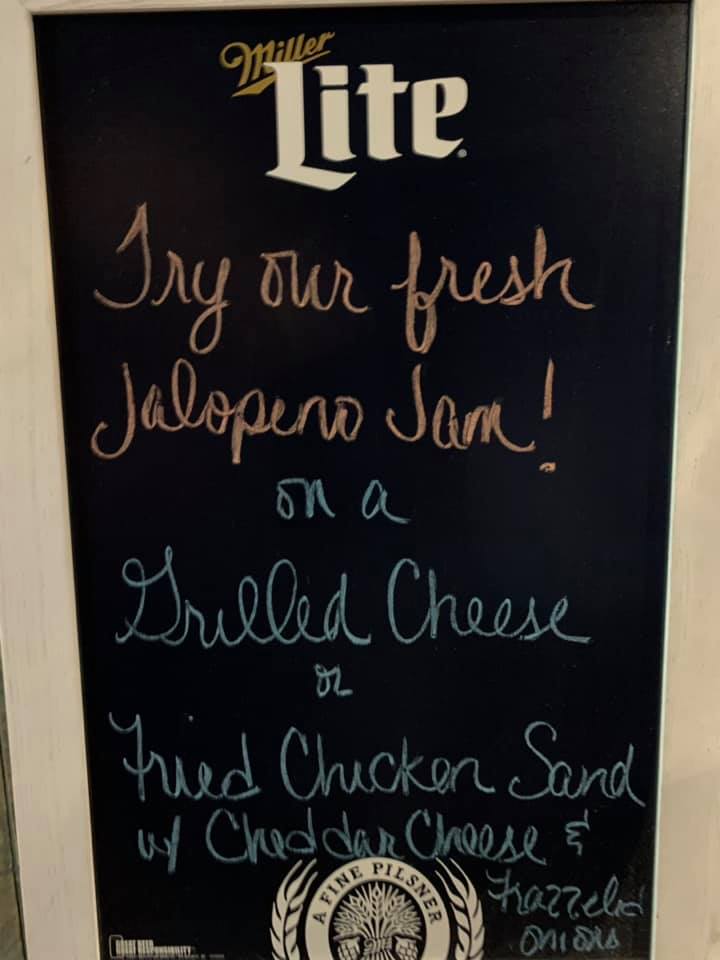 Miller
Lite
Try our fresh
Jalopeno Jam!
on a
Grilled Cheese
or
Fried Chicken Sand
w/ Cheddar Cheese &
Frazzeled
onions
A FINE PILSNER
GREAT BEER
RESPONSIBILITY